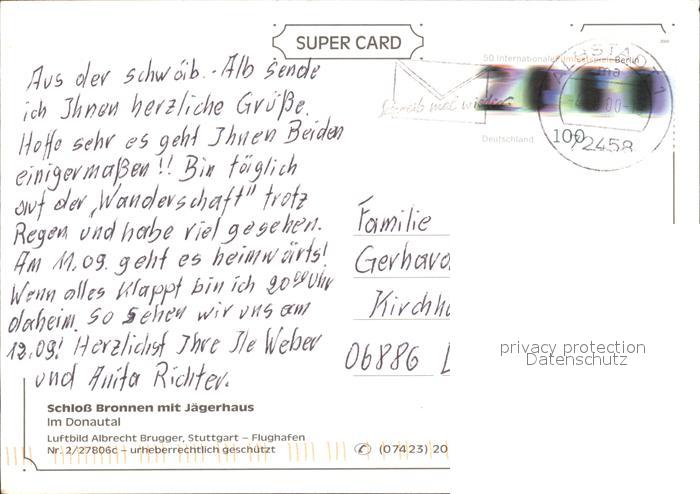 SUPER CARD
50 Internationale Filmfestspiele Berlin
Schreib mal wieder
Deutschland
100
72458
Aus der schwäb. Alb sende
ich Ihnen herzliche Grüße.
Hoffe sehr es geht Ihnen Beiden
einigermaßen!! Bin täglich
auf der „Wanderschaft" trotz
Regen und habe viel gesehen.
Am 11.09. geht es heimwärts!
Wenn alles klappt bin ich 20⁰⁰ Uhr
daheim. So sehen wir uns am
12.09! Herzlichst Ihre Ile Weber
und Anita Richter.
Familie
Gerhard
Kirchh
06886 L
privacy protection
Datenschutz
Schloß Bronnen mit Jägerhaus
Im Donautal
Luftbild Albrecht Brugger, Stuttgart – Flughafen
Nr. 2/27806c – urheberrechtlich geschützt
✆ (07423) 20